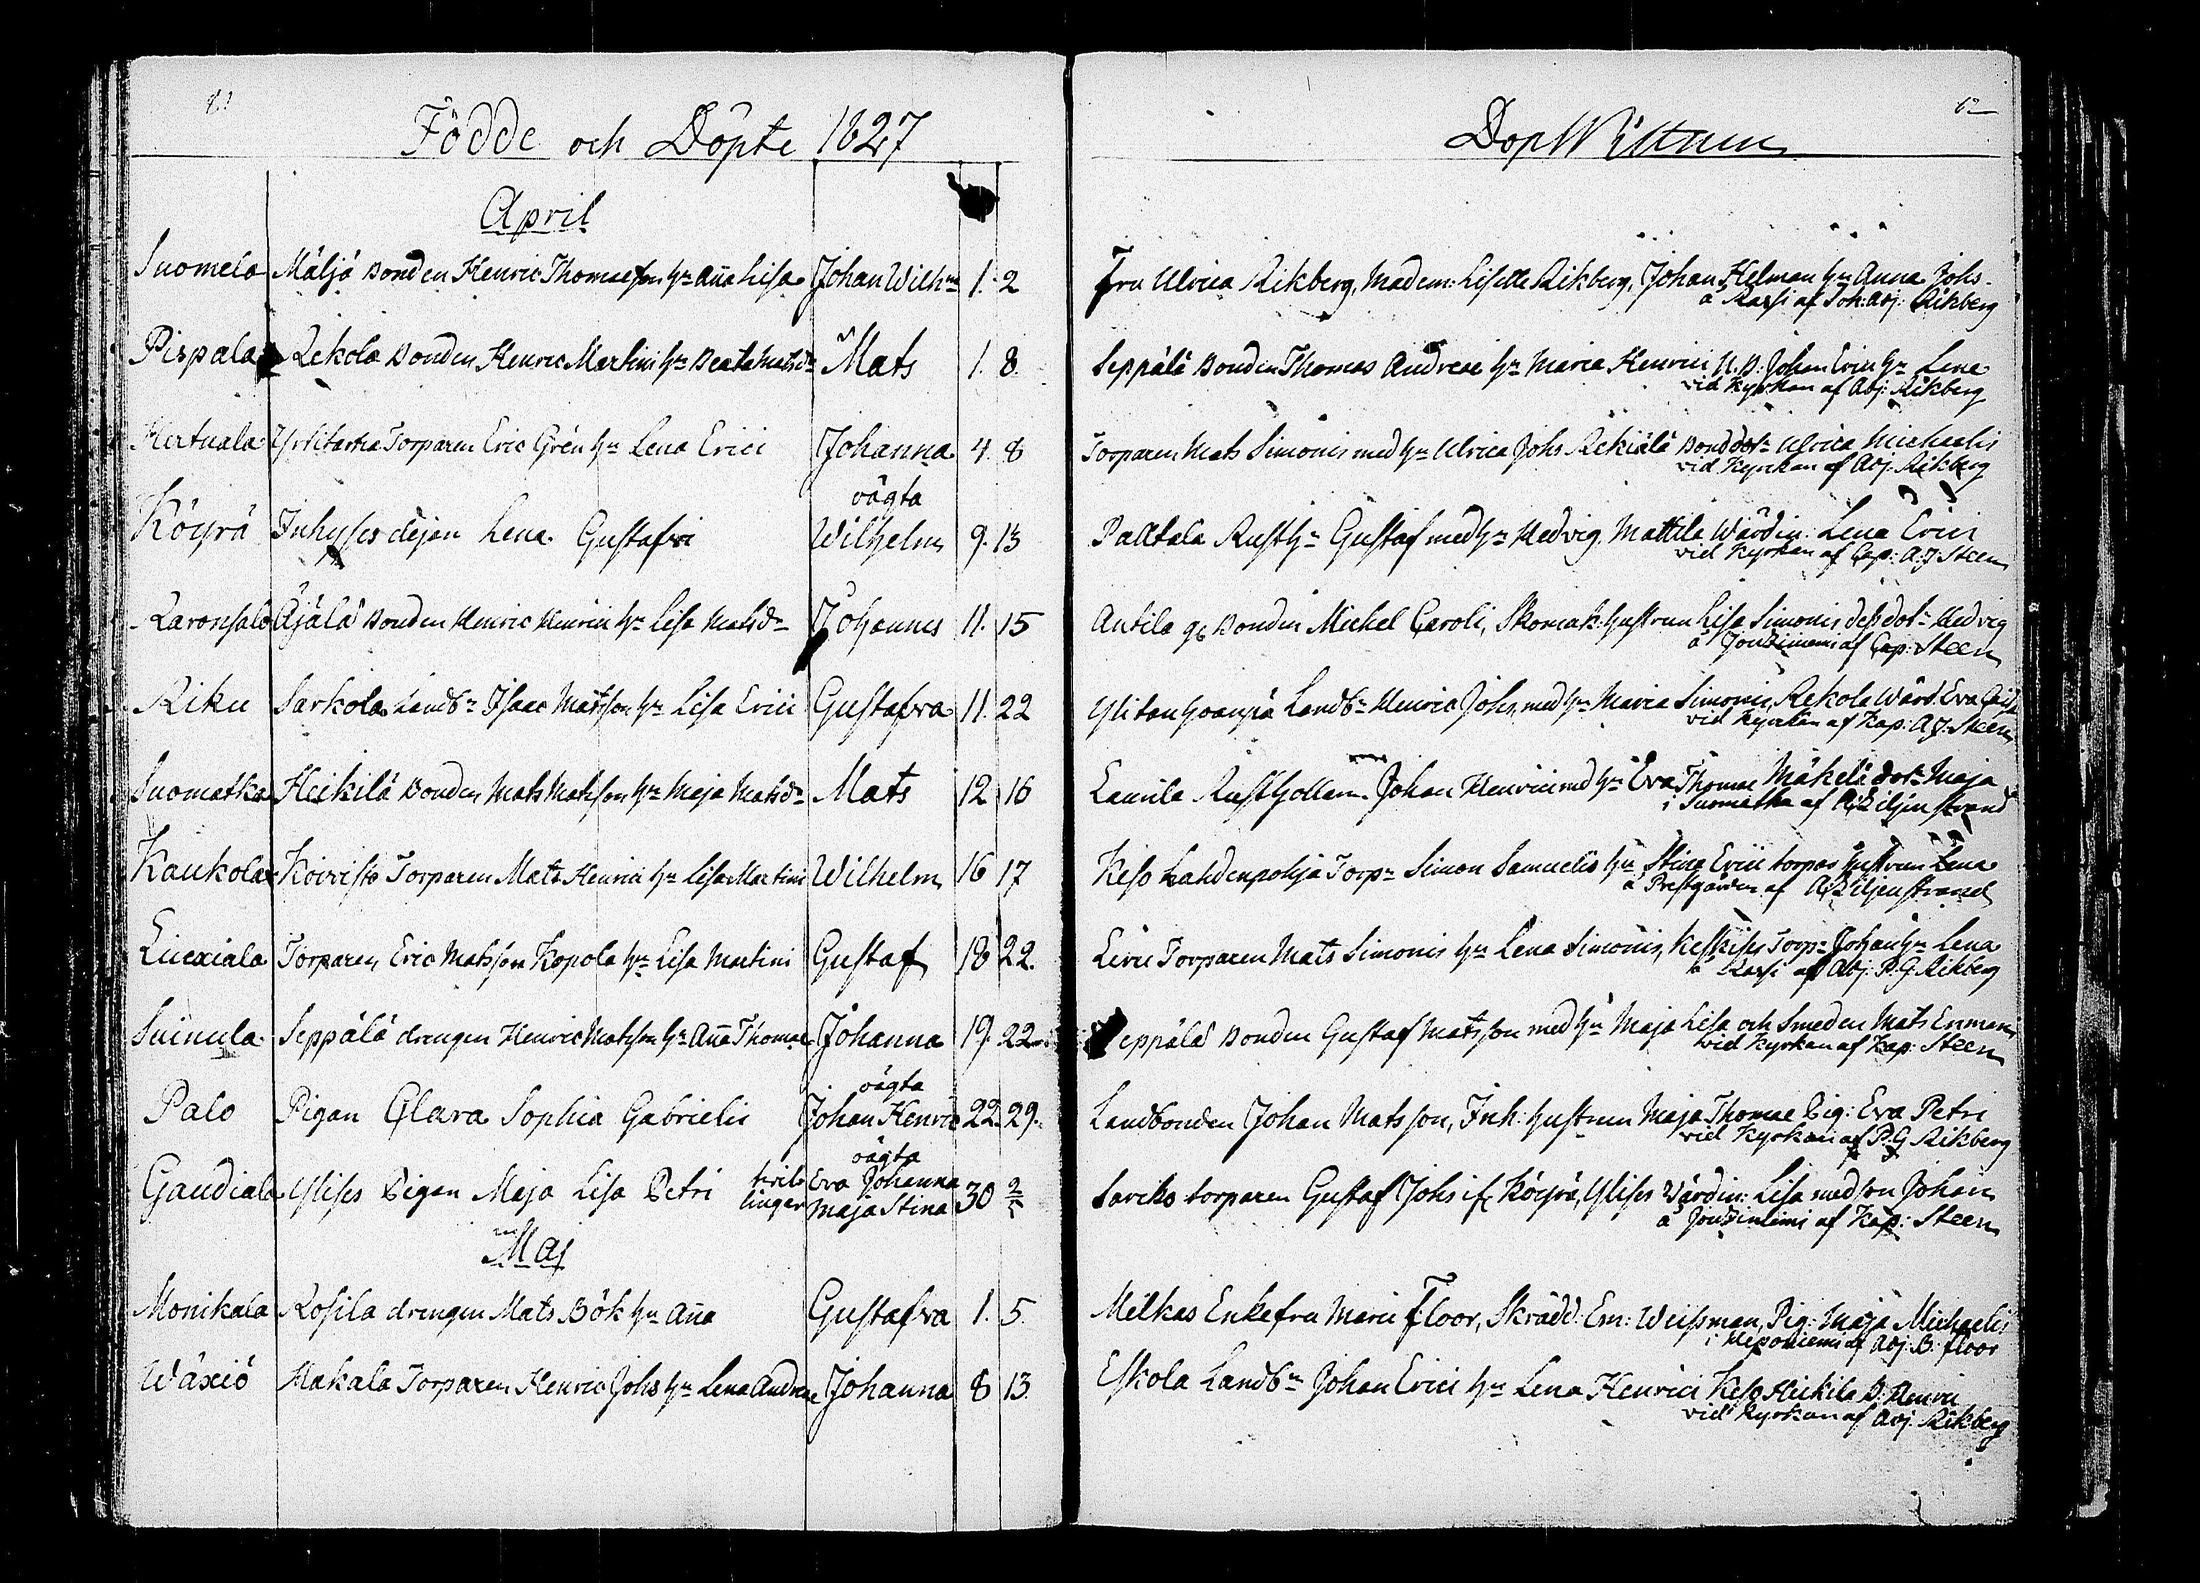 Födde och Döpte 1827
April
Suomela Mäljä Bonden Henric Thomaeson hu Aña Lisa Johan Wilhm 1. 2
Pispala Rekola Bonden Henric Martini hu Beata Matsdr Mats 1. 8.
Torparen Eric Grén hu Lena Erici Johanna 4. 8
oägta
Köyrä Inhyses dejan Lena Gustafvi Wilhelm 9. 13
Äjälä Bonden Henric Henrici hu Lisa Matsdr Johannes 11. 15
Riku Sarkola Landb: Isaac Matsson hu Lisa Erici Gustafva 11. 22
Suomatka Heikilä Bonden Mats Matsson hu Maja Matsdr Mats 12 16
Kaukola Koivisto Torparen Mats Henrici hu Lisa Martini Wilhelm 16 17
Torparen Eric Matsson Kopola hu Lisa Martini Gustaf 18 22.
Suinula Seppälä drengen Henric Matsson hu Aña Thomae Johanna 19. 22
oägta
Palo Pigan Clara Sophia Gabrielis Johan Henric 22. 29.
oägta
Gaudiala Ylises Pigan Maja Lisa Petri tvil- Eva Johanna
lingar Maja Stina 30 2/5
Maj
Monikala Rosila drengen Mats Bök hu Aña Gustafva 1. 5.
Wäxiö Makala Torparen Henric Johs hu Lena Andreae Johanna 8 13.
62
DopWittnen
Fru Ulrica Rikberg, Madem: Lisette Rikberg, Johan Helman hu Anna Johs
å Rassi af Soh: Adj: Rikberg
Seppälä Bonden Thomas Andreae hu Maria Henrici N. B. Johan Erici hu Lena
vid Kyrkan af Adj: Rikberg
Torparen Mats Simonis med hu Ulrica Johs Rekiälä Bonddotr Ulrica Michaelis
vid Kyrkan af Adj. Rikberg
Paltala Rusth: Gustaf med hu Hedvig. Mattila Wärdin: Lena Erici
vid Kyrkan af Cap: A: J Steen
Antila Bonden Michel Caroli, Skomak: hustrun Lisa Simonis dess dotr Hedvig
å Joutziniemi af Cap: Steen
Landb: Henric Johs, med hu Maria Simonis, Rekola Wärd. Eva
vid Kyrkan af Kap: A J: Steen
Laurila Rusthollarn Johan Henrici med hu Eva Thomae Mäkelä dotr Maja
i Suomatka af A Ziljenstrand
Keso Lahdenpohja Torp: Simon Samuelis hu Stina Erici torpar hustrun Lena
å Prestgården af A Ziljenstrand
Torparen Mats Simonis hu Lena Simonis, Torp: Johan hu Lena
å Rassi af Adj: P. G. Rikberg
Seppälä Bonden Gustaf Matsson med hu Maja Lisa och Smeden Mats Enman
vid Kyrkan af Kap: Steen
Landbonden Johan Matsson, Inh: hustrun Maja Thomae Pig: Eva Petri
vid Kyrkan af P. G Rikberg
Sariko torparen Gustaf Johs if: Köyrä, Ylises Wärdin: Lisa med son Johan
å Joutziniemi af Kap: Steen
Melkas Enkefru Marie Floor, Skrädd: Em: Weissman, Pig: Maja Michaelis
i Heponiemi af Adj. B: Floor
Eskola Landb: Johan Erici hu Lena Henrici Keso Heikilä B: Henric
vid Kyrkan af Adj: Rikberg